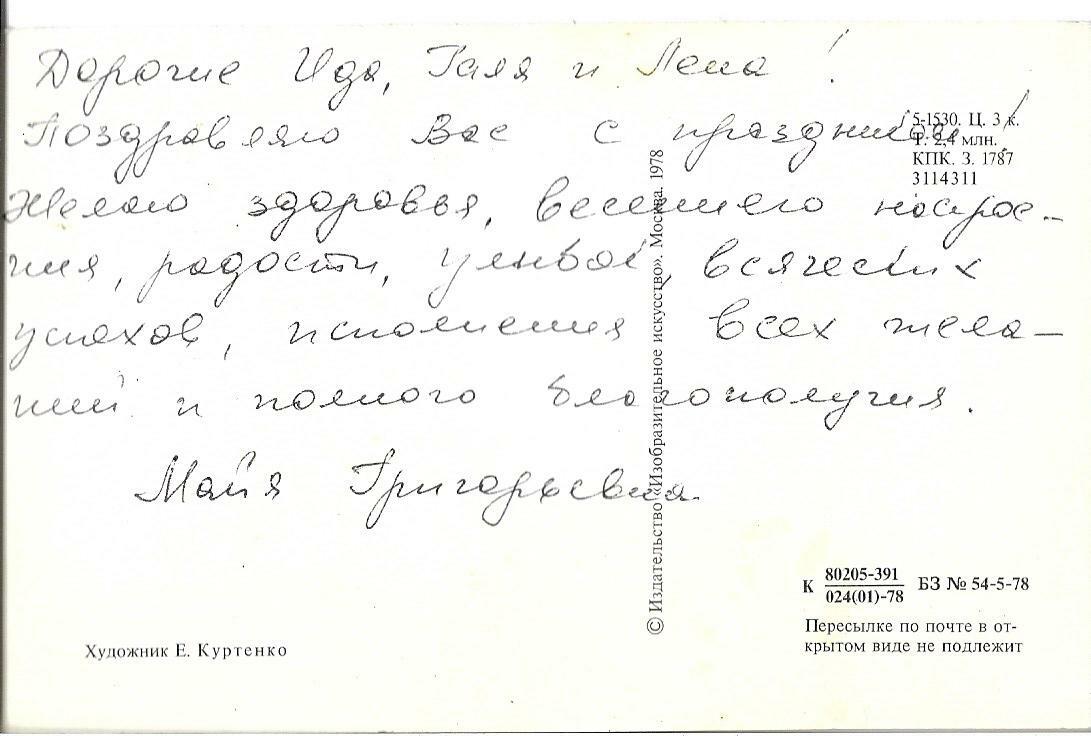 Дорогие Ида, Галя и Лена!
Поздравляю Вас с праздником!
Желаю здоровья, весеннего настрое-
ния, радости, улыбок, всяческих
успехов, исполнения всех жела-
ний и полного благополучия.
Майя Григорьевна.
5-1530. Ц. 3 к.
Т. 2,4 млн.
КПК. З. 1787
3114311
© Издательство «Изобразительное искусство». Москва. 1978
К 80205-391
024(01)-78 БЗ № 54-5-78
Пересылке по почте в от-
крытом виде не подлежит
Художник Е. Куртенко